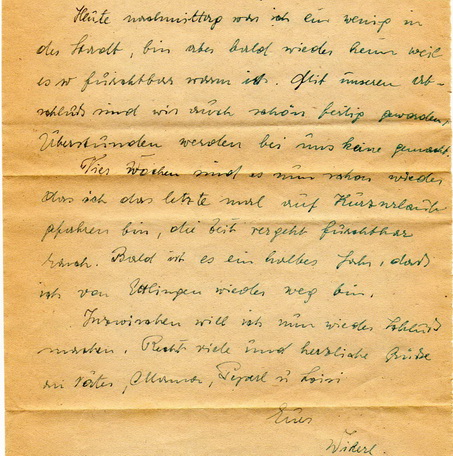 Heute nachmittag war ich ein wenig in
der Stadt, bin aber bald wieder heim weil
es so furchtbar warm ist. Mit unseren Ab-
schluß sind wir auch schön fertig geworden,
Überstunden werden bei uns keine gemacht.
Vier Wochen sind es nun schon wieder
das ich das letzte mal auf Kurzurlaub
gefahren bin, die Zeit vergeht furchtbar
rasch. Bald ist es ein halbes Jahr, dass
ich von Ettlingen wieder weg bin.
Inzwischen will ich nun wieder Schluß
machen. Recht viele und herzliche Grüße
an Vater, Mama, Peperl u Loisi
Euer